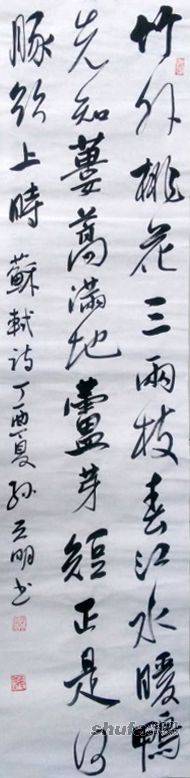 竹外桃花三兩枝春江水暖鴨
先知蔞蒿滿地蘆芽短正是河
豚欲上時 蘇軾诗丁酉夏孙云明书